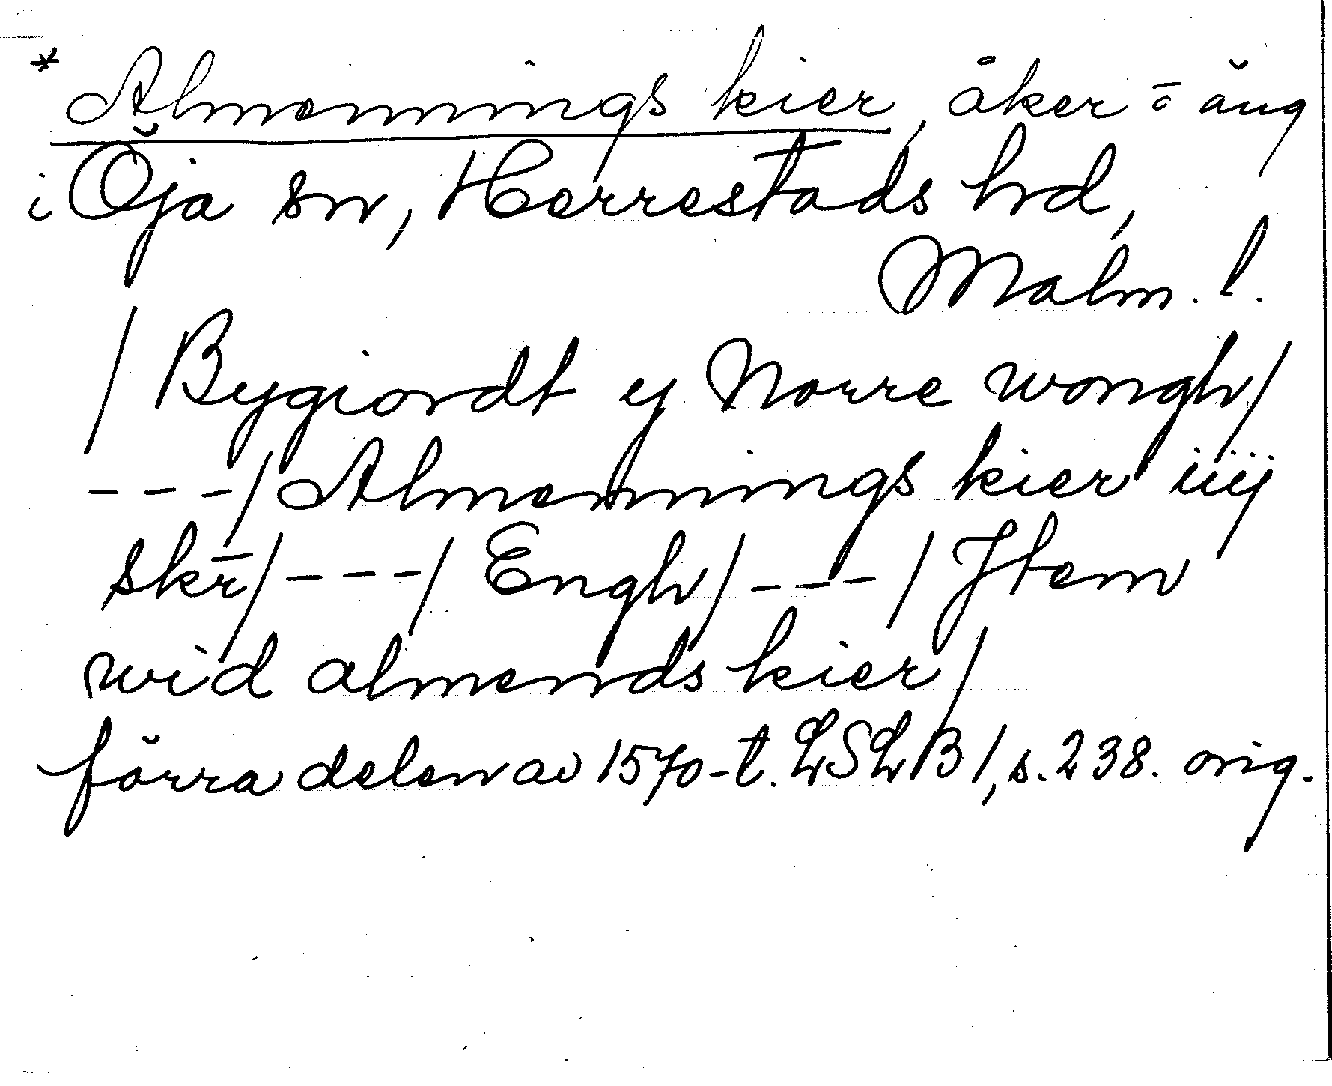 * Almennings kier, åker o äng
i Öja sn, Herrestads hrd,
Malm. l.
/ Bygiordt ij Norre wongh/
---/ Almennings kier iiij
skr̄/ ---/ Engh/ ---/ Jtem
wid almends kier/
förra delen av 1570-t. LSLB 1, s. 238. orig.